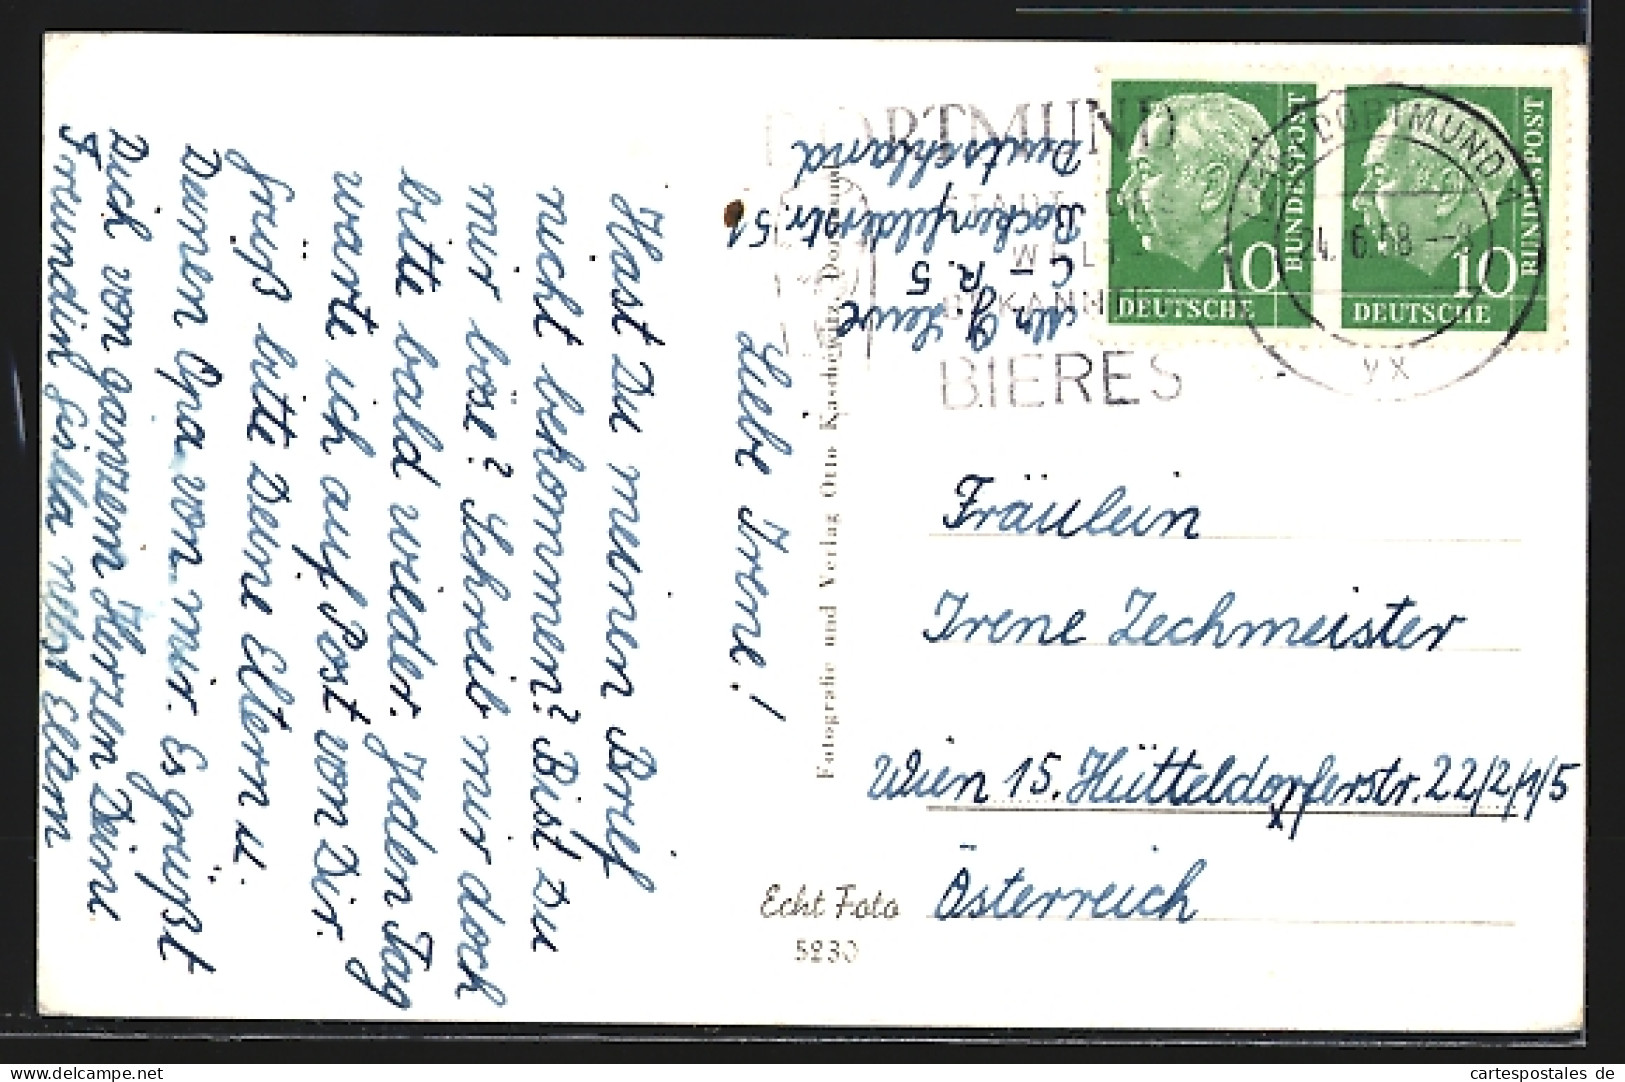 Liebe Irene!
Hast Du meinen Brief
nicht bekommen? Bist Du
mir böse? Schreib mir doch
bitte bald wieder. Jeden Tag
warte ich auf Post von Dir.
Grüß bitte Deine Eltern u.
Deinen Opa von mir. Es grüßt
Dich von ganzem Herzen Deine
Freundin Gisella nebst Eltern
Bockenfelderstr. 51
Deutschland
Fotografie und Verlag Otto Kaschewitz, Dortmund
DORTMUND
STADT DES
WELT
BEKANNTEN
BIERES
DORTMUND
24.6.58
BUNDESPOST
10
DEUTSCHE
BUNDESPOST
10
DEUTSCHE
Fräulein
Irene Zechmeister
Wien 15. Hütteldorferstr. 22/2/1/5
Österreich
Echt Foto
5230
www.delcampe.net
cartespostales de